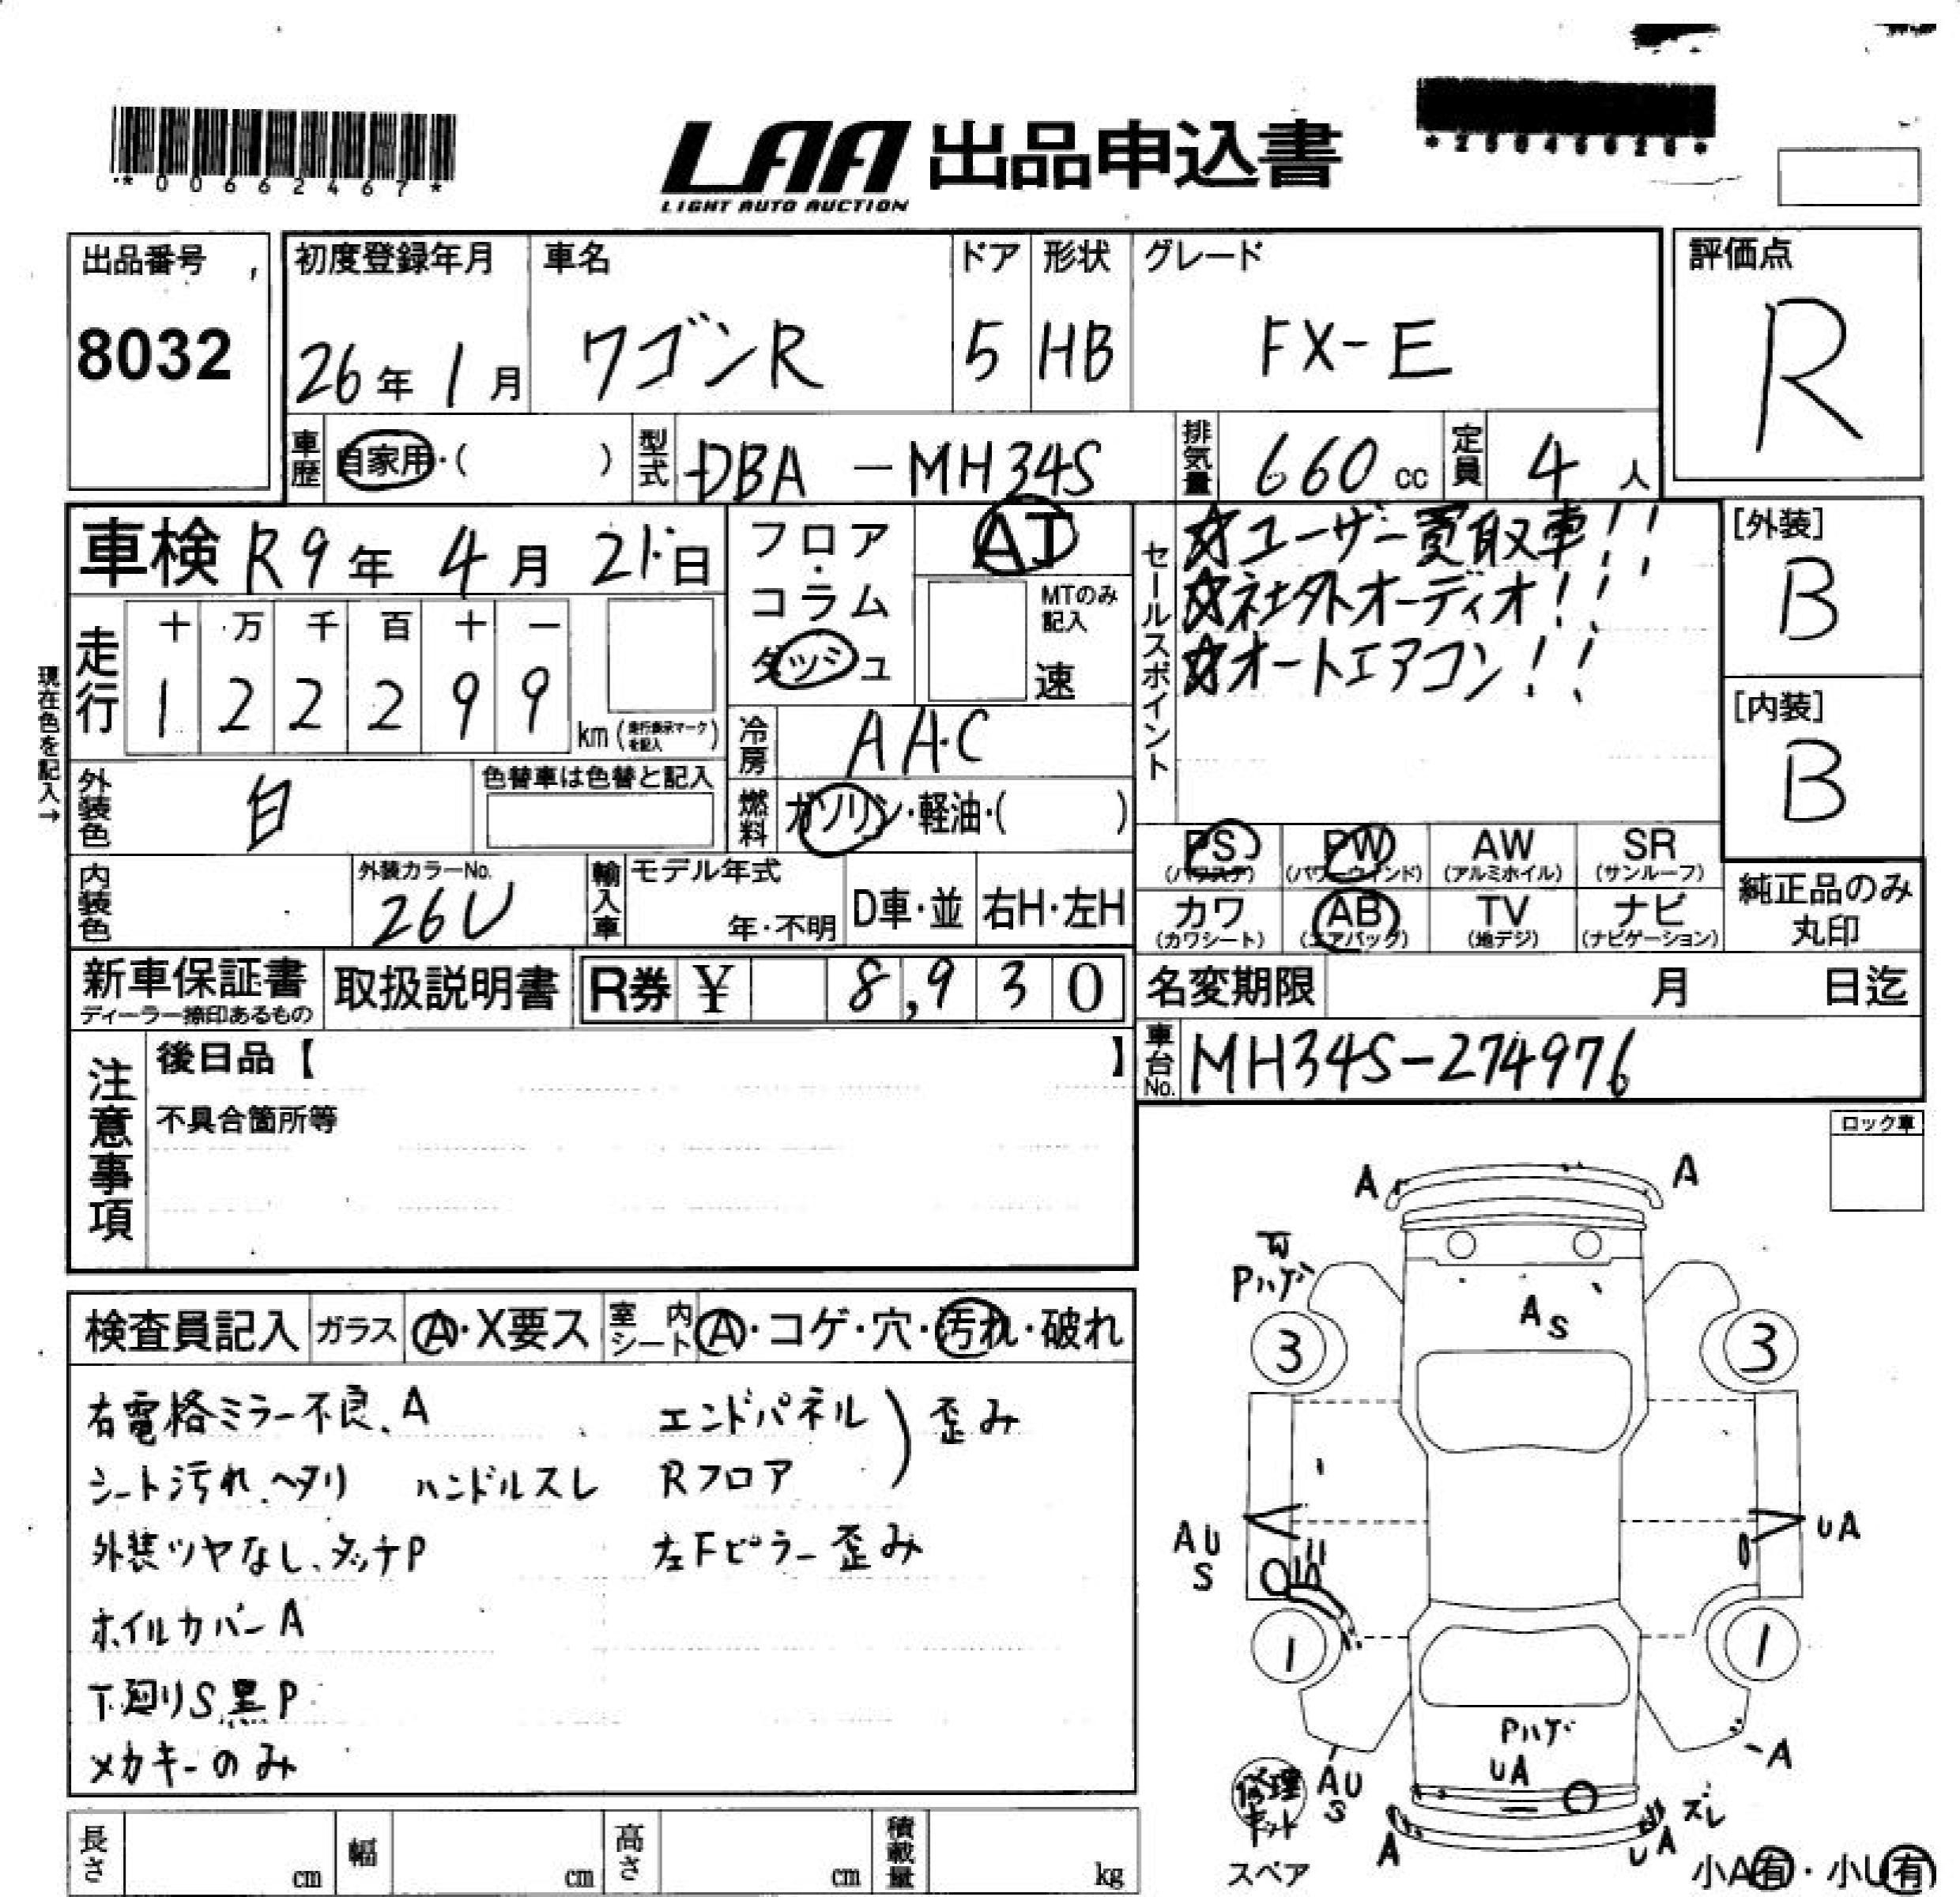 *00662467*
LAA 出品申込書
LIGHT AUTO AUCTION
出品番号
8032
初度登録年月
26年1月
車名
ワゴンR
ドア
5
形状
HB
グレード
FX-E
評価点
R
車歴
自家用・( )
型式
DBA-MH34S
排気量
660cc
定員
4人
車検 R9年4月21日
フロア・コラム
ダッシュ
AT
MTのみ記入
速
セールスポイント
☆ユーザー買取車!!
☆社外オーディオ!!
☆オートエアコン!!
[外装]
B
[内装]
B
現在色を記入→
走行
十 万 千 百 十 一
1 2 2 2 9 9
km(走行表示マークを記入)
冷房
AAC
燃料
ガソリン・軽油・( )
外装色
白
色替車は色替と記入
内装色
外装カラーNo.
26U
輸入車
モデル年式
年・不明
D車・並
右H・左H
PS (パワステ)
PW (パワーウィンド)
AW (アルミホイル)
SR (サンルーフ)
カワ (カワシート)
AB (エアバッグ)
TV (地デジ)
ナビ (ナビゲーション)
純正品のみ丸印
新車保証書
ディーラー捺印あるもの
取扱説明書
R券 ¥ 8,930
名変期限 月 日迄
車台No.
MH34S-274976
注意事項
後日品【 】
不具合箇所等
ロック車
検査員記入
ガラス
A・X要ス
室内シート
A・コゲ・穴・汚れ・破れ
右電格ミラー不良、A
シート汚れ、ヘタリ ハンドルスレ
外装ツヤなし、タッチP
ホイルカバーA
下廻りS黒P
メカキーのみ
エンドパネル
Rフロア
歪み
左Fピラー歪み
A
A
Pハゲ
AS
3
3
AU
S
UA
1
1
Pハゲ
UA
A
AU
S
修理キット
スペア
A
ズレ
UA
小A有・小U有
長さ cm
幅 cm
高さ cm
積載量 kg